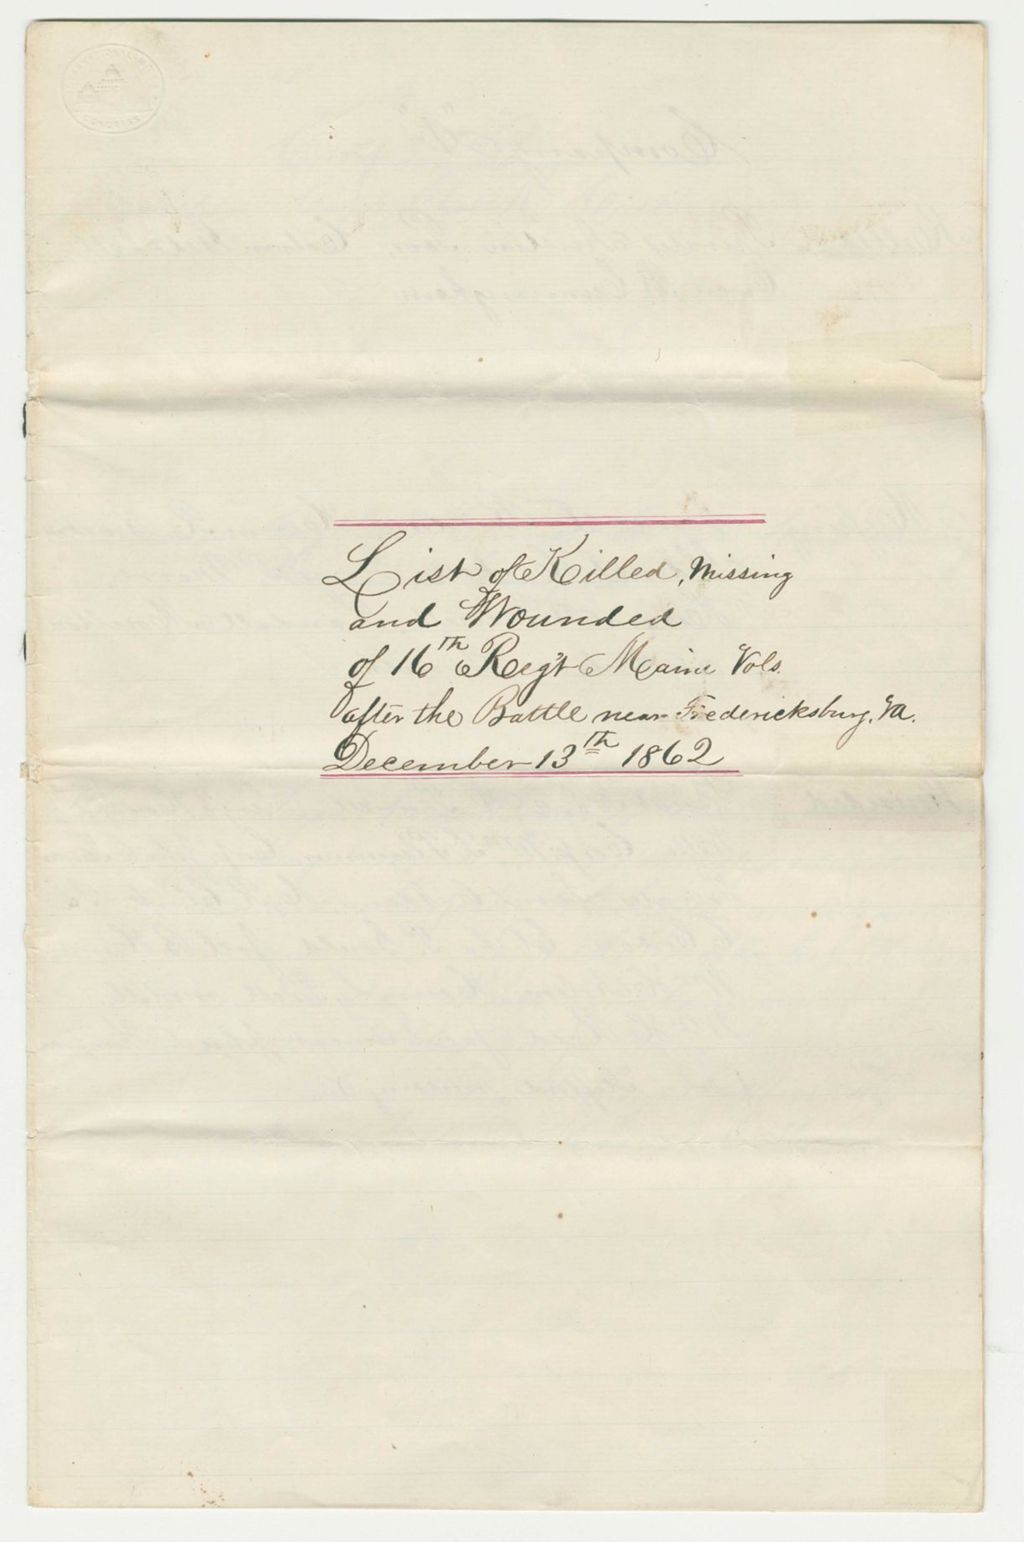 List of Killed, Missing
and Wounded
of 16th Reg't Maine Vols.
after the Battle near Fredericksburg, Va.
December 13th 1862